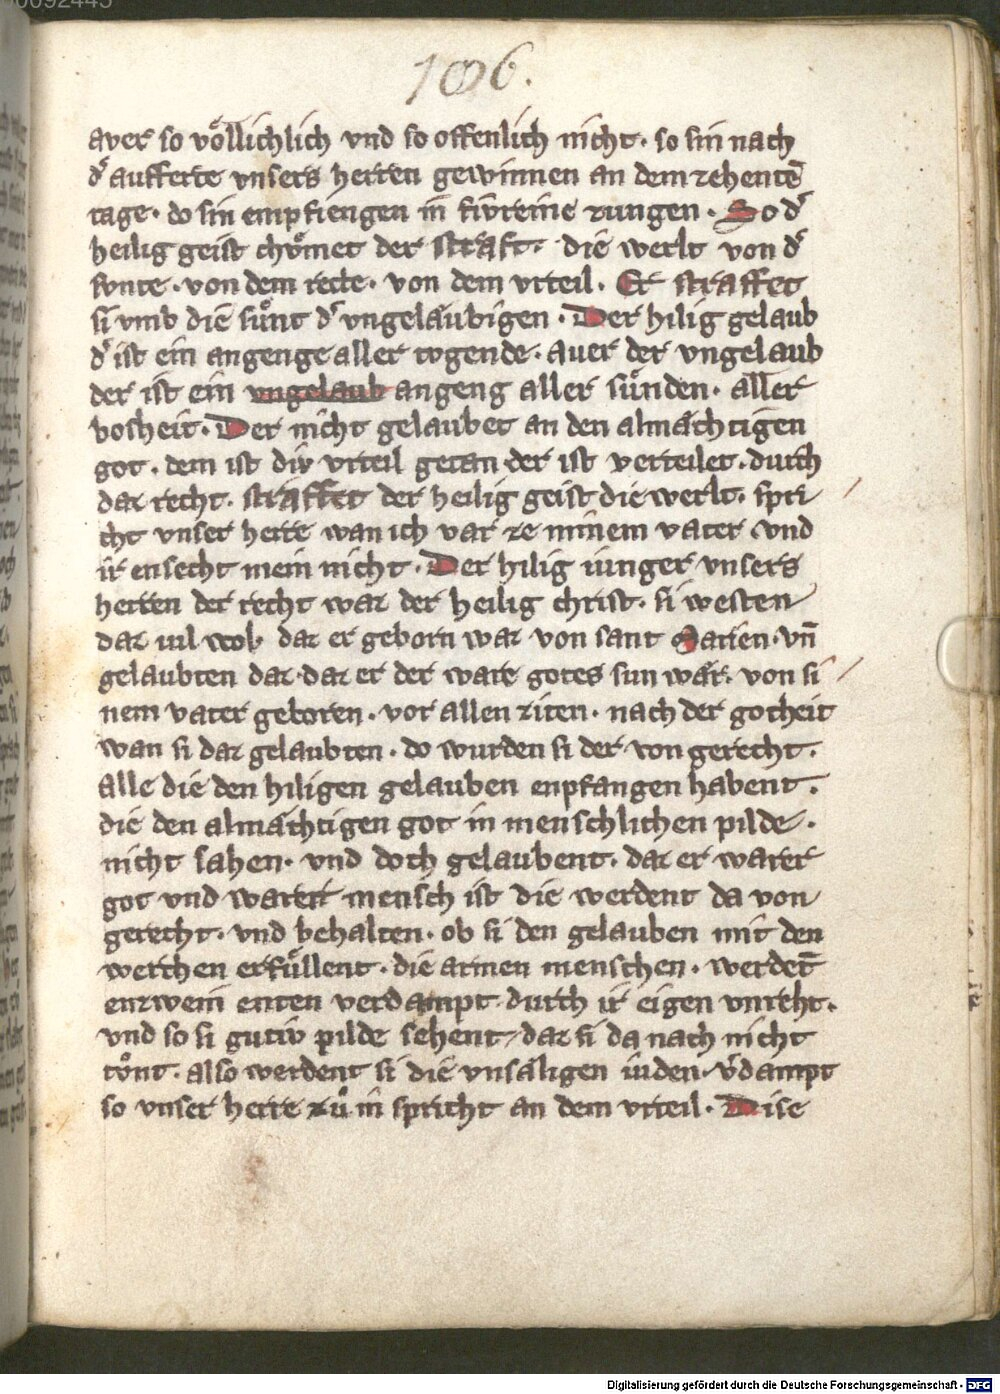 106.
aver so voͤllichlich vnd so offenlich nicht · so sin nach
dͤ aufferte vnsers herren gewinnen an dem zehentē
tage · do sin empfiengen in fivreine zungen · So dͤ
heilig geist choͤmet der straft · die werlt von dͤ
sunte · von dem recte · von dem vrteil · Er straffet
si vmb die suͤnt dͤ vngelaubigen · Der hilig gelaub
dͤ ist ein angenge aller togende · auer der vngelaub
der ist ein vngelaub angeng aller suͤnden · aller
bosheit · Der nicht gelaubet an den almaͤchtigen
got · dem ist div vrteil getan der ist verteilet · durch
daz recht · straffet der heilig geist die werlt · spri
cht vnser herre wan ich var ze minem vater vnd
ir ensecht mein nicht · Der hilig iunger vnsers
herren der recht waz der heilig christ · si westen
daz uil wol daz er geborn waz von sant Marien · vn̄
gelaubten daz · daz er der ware gotes sun waͤr · von si
nem vater geboren · vor allen ziten · nach der gotheit
wan si daz gelaubten · do wurden si der von gerecht ·
alle die den hiligen gelauben enpfangen habent ·
die den almaͤchtigen got in menschlichen pilde ·
nicht sahen · vnd doch gelaubent · daz er warer
got vnd warer mensch ist die werdent da von
gerecht · vnd behalten · ob si den gelauben mit den
werchen erfuͤllent · die armen menschen · werdēt
enzwein enten verdampt durch ir eigen vnreht ·
vnd so si gutiv pilde sehent / daz si da nach nicht
toͤnt · also werdent si die vnsaͤligen iuden · v̓dampt
so vnser herre zuͦ in spricht an dem vrteil · Dise
Digitalisierung gefördert durch die Deutsche Forschungsgemeinschaft - DFG